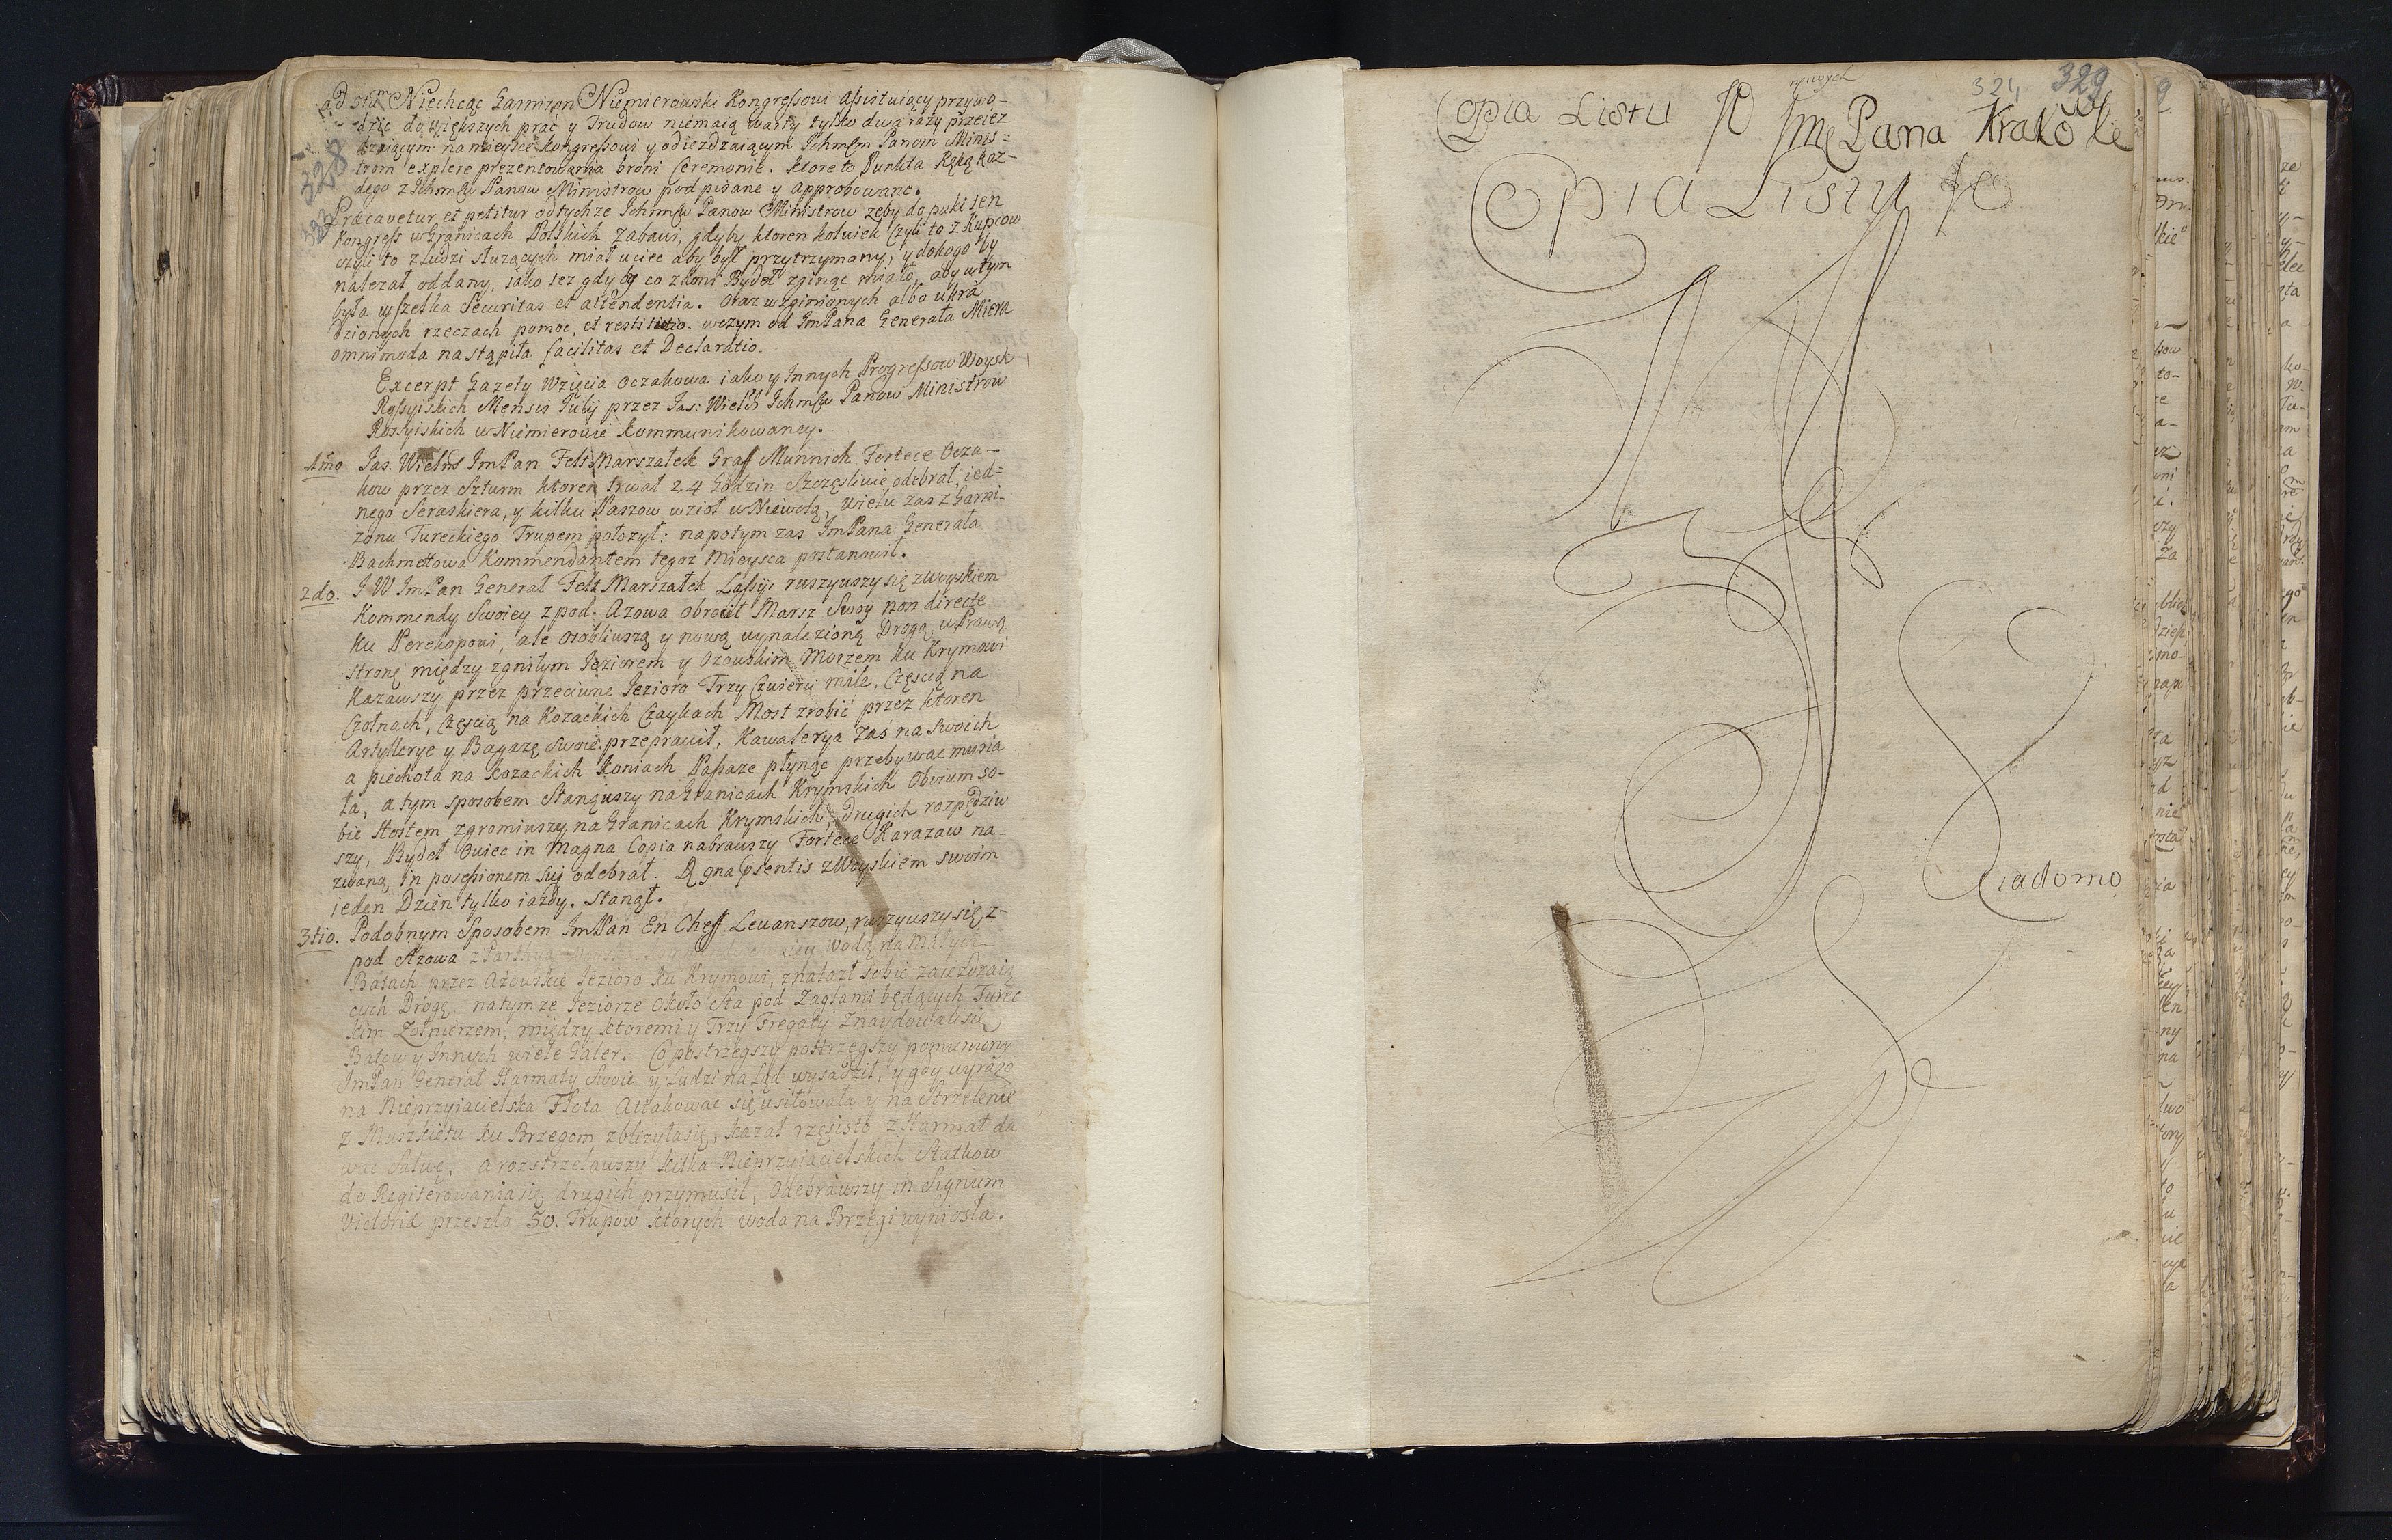 ad 5tum Niechcąc Garnizon Niemierowski Kongressowi assistuiący przywo-
dzic do większych prac y Trudow niemaią warty tylko dwa razy przeiez
dzaiącym na mieysce kongressowi y odiezdzaiącym Ichmśm Panom Minis=
trom explere prezentowania broni Ceremonie. ktore to Punkta Ręką kaz-
dego z Ichmśw Panow Ministrow podpisane y approbowane.
328
333
Præcavetur et petitur od tychze Ichmśw Panow Ministrow zeby do puki ten
Kongress w Granicach Polskich zabawi, gdyby ktoren kolwiek czyli to z Kupcow
czyli to z ludzi słuzących miał uciec aby był przytrzymany, y do kogo by
nalezał oddany, iako tez gdy by co z koni Bydeł zginąc miało, aby w tym
była wszelka Securitas et attendentia. Oraz w zginionych albo ukra
dzionych rzeczach pomoc, et restitutio. w czym od ImPana Generała Miera
omnimoda nastąpiła facilitas et Declaratio.
Excerpt Gazety Wzięcia Oczakowa iako y Innych Progressow Woysk
Rossyiskich Mensis Julij przez Jas: Wielch Ichmśw Panow Ministrow
Rossyiskich w Niemierowie kommunikowaney.
1mo Jas. Wielms ImPan Felt Marszałek Graff Munnich Fortece Ocza-
kow przez Szturm ktoren trwał 24 Godzin Szczęsliwie odebrał, ied=
nego Seraskiera, y kilku Paszow wzioł w Niewolą, wielu zas z Garni-
zonu Tureckiego Trupem połozył: na potym zas ImPana Generała
Bachmettowa Kommendantem tegoz Mieysca postanowił.
2do. JW ImPan Generał Felt Marszałek Lassy, ruszywszy się z woyskiem
Kommendy Swoiey z pod Azowa obrocił Marsz Swoy non directe
ku Perekopowi, ale osobliwszą y nową wynalezioną Drogą w Prawą
stronę między zgniłym Jeziorem y Ozowskim Morzem ku Krymowi
Kazawszy przez przeciwne Jezioro Trzy Czwierci mile, Częscią na
Czołnach, Częscią na Kozackich Czaykach Most zrobić przez ktoren
Artyllerye y Bagazę swoie przeprawił, Kawalerya zaś na swoich
a piechota na kozackich koniach Passaze płynąc przebywac musia
ła, a tym sposobem Stanąwszy na Granicach Krymskich Obvium so-
bie Hostem zgromiwszy na Granicach Krymskich, drugich rozpędziw
szy, Bydeł Owiec in Magna Copia nabrawszy Fortece Karazaw na-
zwaną, in possessionem suj odebrał. z Woyskiem swoim
jeden Dzien tylko iazdy. Stanął.
3tio. Podobnym Sposobem ImPan En Cheff Lewanszow, ruszywszy się z-
pod Azowa z Partyą wodą na Małych
Batach przez Azowskie Jezioro ku Krymowi, znalazł sobie zaiezdzaią
cych Drogę, na tymze Jeziorze Około Sta pod Zaglami będących Turec
kim Zołnierzem, między ktoremi y Trzy Fregaty Znaydowali się
Batow y Innych wiele Galer. Co postrzegszy postrzegszy pomieniony
ImPan Generał Harmaty Swoie y Ludzi na Ląd wysadził, y gdy
na Nieprzyiacielska Flota Attakowac się usiłowała y na Strzelenie
z Muszkietu ku Brzegom zblizyła się, kazał rzęsisto z Harmat da
wac Salwę, a rozstrzelawszy kilka Nieprzyiacielskich Statkow
do Regiterowania się drugich przymusił, Odebrawszy in Signum
Victoriæ przeszło 50. Trupow ktorych woda na Brzegi wyniosła.
324 329
Copia Listu JO Jmę Pana Krakowskie
Copia Listu JO
Wiadomo